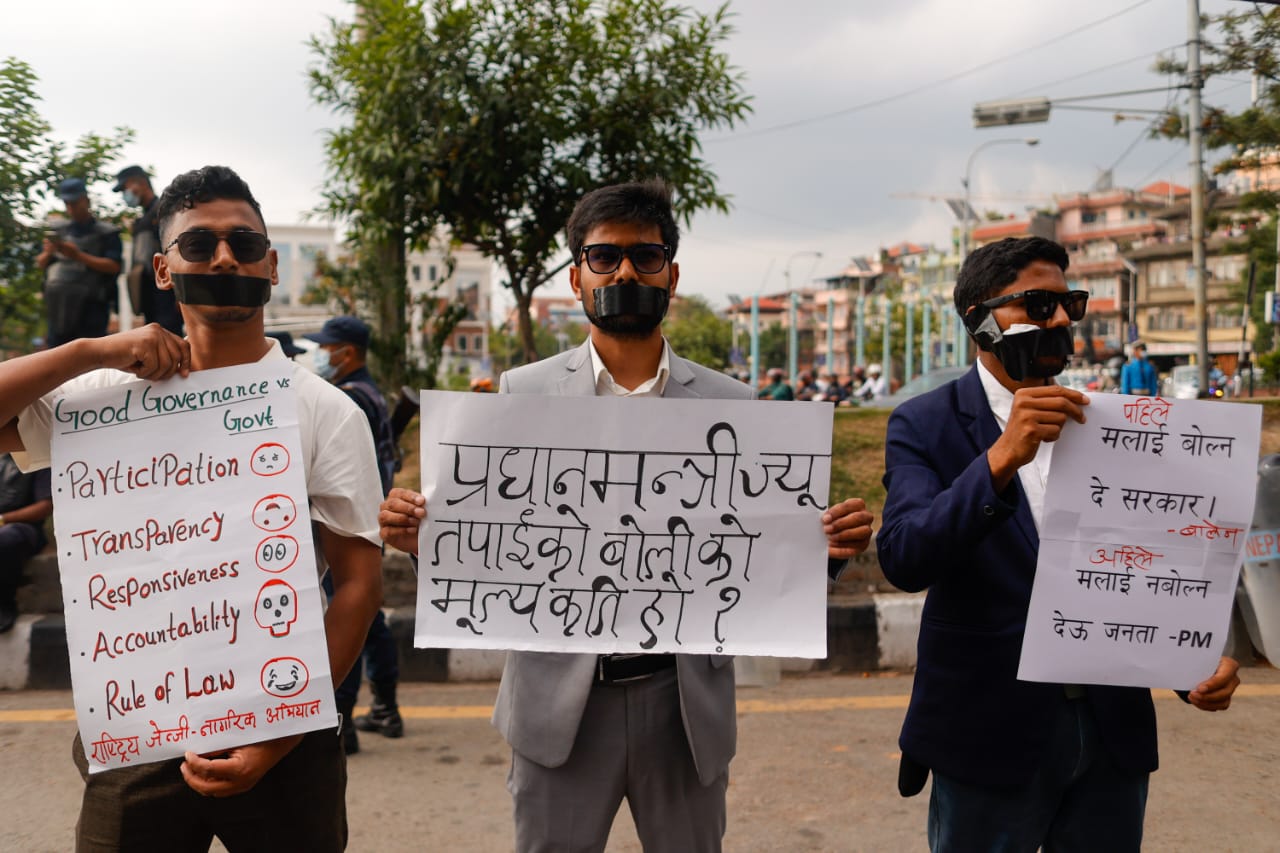 Good Governance vs
Govt
· Participation
· Transparency
· Responsiveness
· Accountability
· Rule of Law
राष्ट्रिय जेन्जी-नागरिक अभियान
प्रधानमन्त्रीज्यू
तपाईको बोलीको
मूल्य कति हो ?
पहिले
मलाई बोल्न
दे सरकार।
- बालेन
अहिले
मलाई नबोल्न
देऊ जनता -PM
NEP